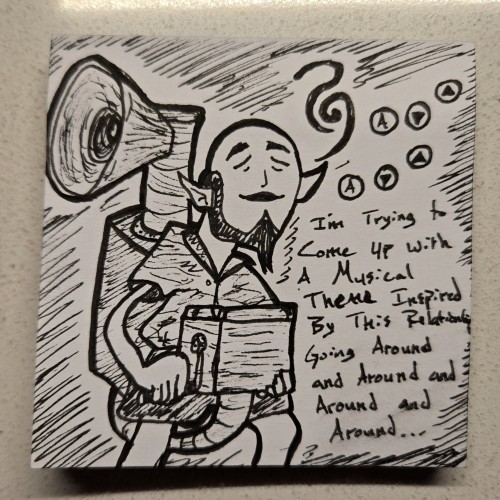 A ▼ ▲
A ▼ ▲
I'm Trying to
Come up with
A Musical
Theme Inspired
By This Relationship
Going Around
and Around and
Around and
Around...